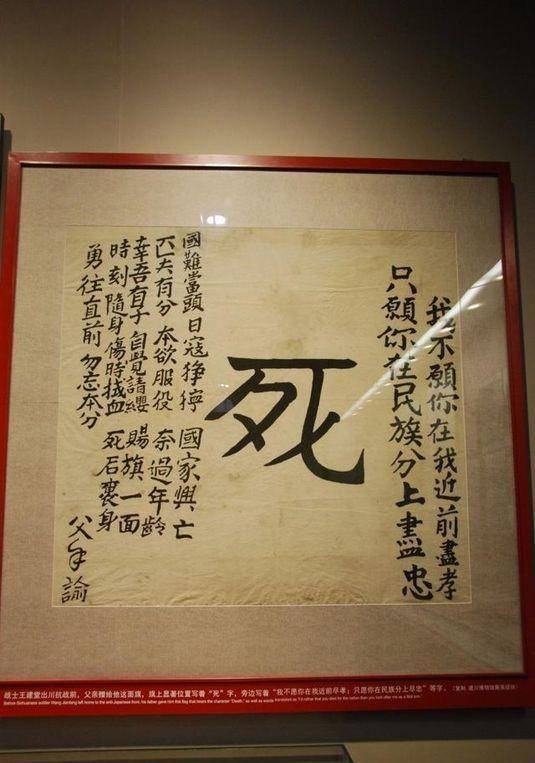 我不願你在我近前盡孝
只願你在民族分上盡忠
死
國難當頭 日寇猙獰 國家興亡
匹夫有分 本欲服役 奈過年齡
幸吾有子 自覺請纓 賜旗一面
時刻隨身 傷時拭血 死后裹身
勇往直前 勿忘本分
父手諭
战士王建堂出川抗战前，父亲赠给他这面旗，旗上显著位置写着“死”字，旁边写着“我不愿你在我近前尽孝；只愿你在民族分上尽忠”等字。（复制 建川博物馆聚落提供）
Before Sichuanese soldier Wang Jiantang left home to the anti-Japanese front, his father gave him this flag that bears the character "Death," as well as words translated as "I'd rather that you died for the nation than you look after me as a filial son."